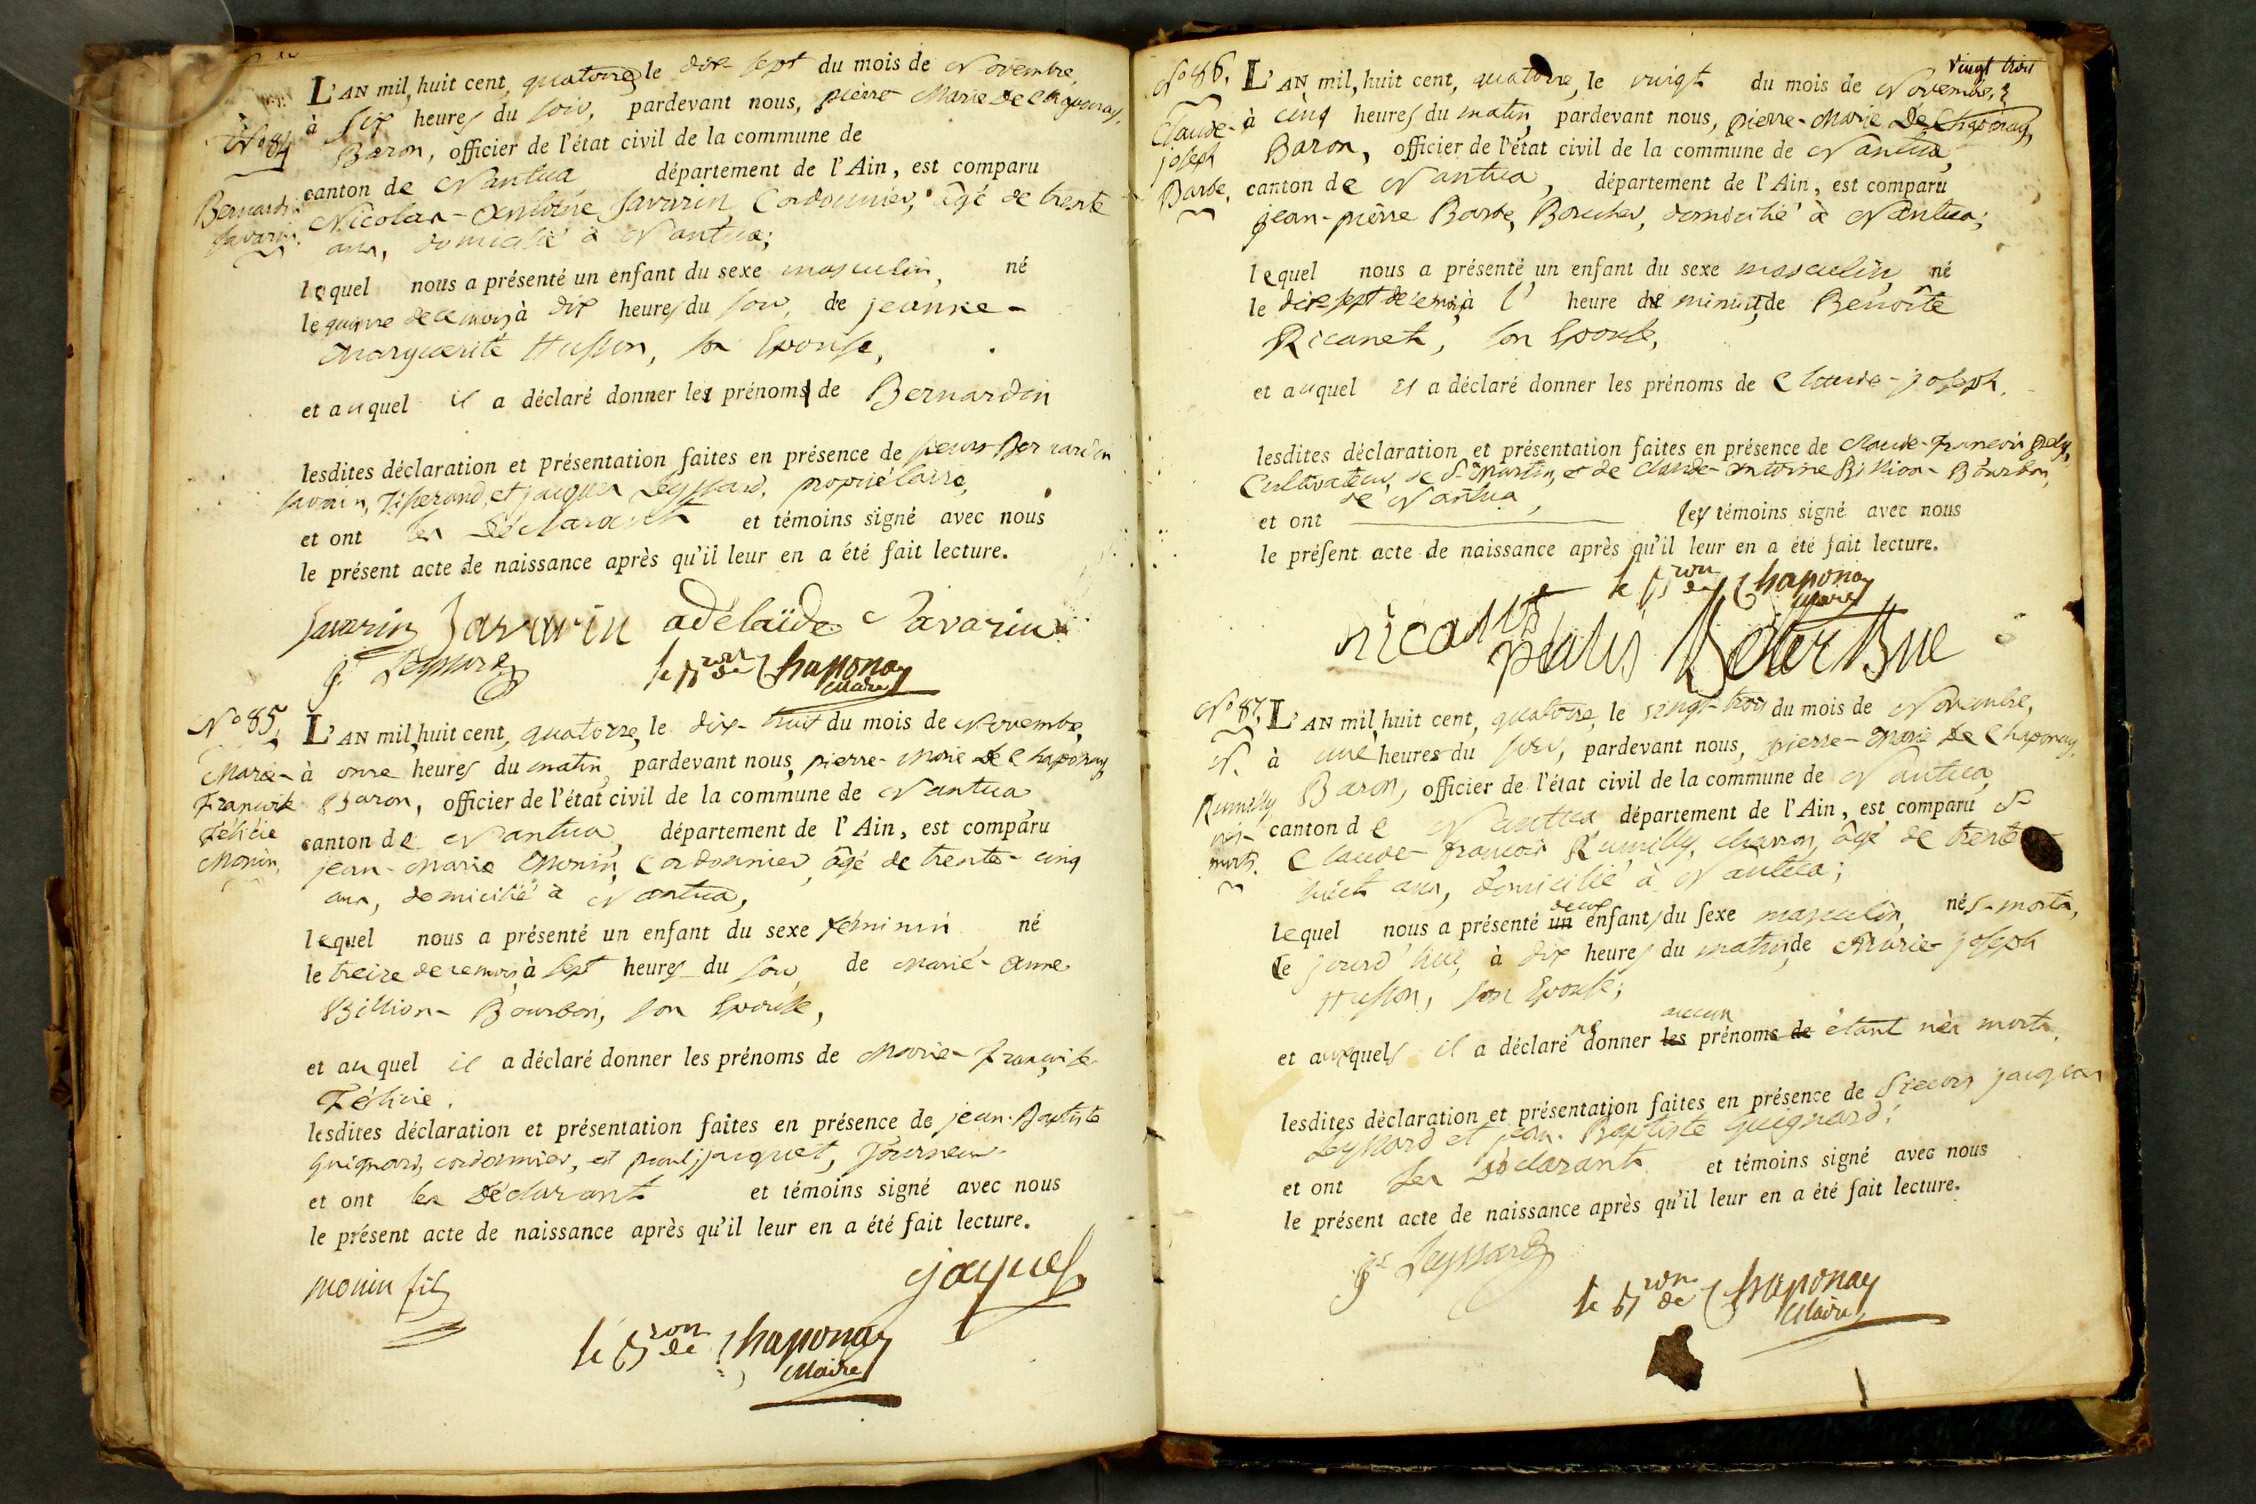 N.º 84
Bernardin
Savarin.
L'AN mil huit cent quatorze le dix sept du mois de Novembre,
à six heures du soir, pardevant nous, pierre Marie De Chaponay,
Baron, officier de l'état civil de la commune de
canton de Nantua département de l'Ain, est comparu
Nicolas-Antoine Savarin, Cordonnier, âgé de trente
ans, domicilié à Nantua;
lequel nous a présenté un enfant du sexe masculin, né
le quinze de ce mois, à dix heures du soir, de jeanne-
Marguerite Husson, son Epouse,
et auquel il a déclaré donner les prénoms de Bernardin
lesdites déclaration et présentation faites en présence de sieurs Bernardin
Savarin, Tisserand, et jacques Leyssard, propriétaire,
et ont les Déclarants et témoins signé avec nous
le présent acte de naissance après qu'il leur en a été fait lecture.
Savarin Savarin adélaïde Savarin
j. Leyssard
le Bron de Chaponay
Maire
N.º 85,
Marie-
Françoise
Félicie
Monin,
L'AN mil huit cent, quatorze, le dix-huit du mois de Novembre,
à onze heures du matin, pardevant nous, pierre-Marie De Chaponay
Baron, officier de l'état civil de la commune de Nantua,
canton de Nantua, département de l'Ain, est comparu
jean-Marie Monin, Cordonnier, âgé de trente-cinq
ans, domicilié à Nantua,
lequel nous a présenté un enfant du sexe féminin, né
le treize de ce mois, à sept heures du soir, de Marie-Anne
Billion-Bourbon, son Epouse,
et auquel il a déclaré donner les prénoms de Marie-Françoise
Félicie.
lesdites déclaration et présentation faites en présence de jean-Baptiste
Guignard, cordonnier, et paul jacquet, Tourneur
et ont les Déclarants et témoins signé avec nous
le présent acte de naissance après qu'il leur en a été fait lecture.
monin fils
jaquet
le Bron de Chaponay
Maire
vingt trois
N.º 86,
Claude-
joseph
Barbe.
L'AN mil, huit cent, quatorze, le vingt du mois de Novembre,
à cinq heures du matin, pardevant nous, pierre-Marie De Chaponay,
Baron, officier de l'état civil de la commune de Nantua,
canton de Nantua, département de l'Ain, est comparu
jean-pierre Barbe, Boucher, domicilié à Nantua;
lequel nous a présenté un enfant du sexe masculin, né
le dix sept de ce mois, à l' heure de minuit, de Benoîte
Ricanet, son Epouse,
et auquel il a déclaré donner les prénoms de Claude-joseph.
lesdites déclaration et présentation faites en présence de Claude-François
Cultivateur, de St Martin, et de Claude-Antoine Billion-Bourbon,
de Nantua,
et ont les témoins signé avec nous
le présent acte de naissance après qu'il leur en a été fait lecture.
le Bron de Chaponay
Maire
N.º 87,
N.
Rumilly
nés-
morts.
L'AN mil huit cent, quatorze, le vingt-trois du mois de Novembre,
à une heures du soir, pardevant nous, pierre-Marie De Chaponay,
Baron, officier de l'état civil de la commune de Nantua,
canton de Nantua département de l'Ain, est comparu Sr
Claude-François Rumilly, charron, âgé de trente
huit ans, domicilié à Nantua;
lequel nous a présenté un deux enfants du sexe masculin, nés-morts,
Ce jourd'hui, à dix heures du matin, de Marie-joseph
Husson, son Epouse;
et auxquels il a déclaré ne donner les aucun prénoms de étant nés morts.
lesdites déclaration et présentation faites en présence de Sieurs jacques
Leyssard et jean-Baptiste Guignard.
et ont Les Déclarants et témoins signé avec nous
le présent acte de naissance après qu'il leur en a été fait lecture.
Leyssard
le Bron de Chaponay
Maire